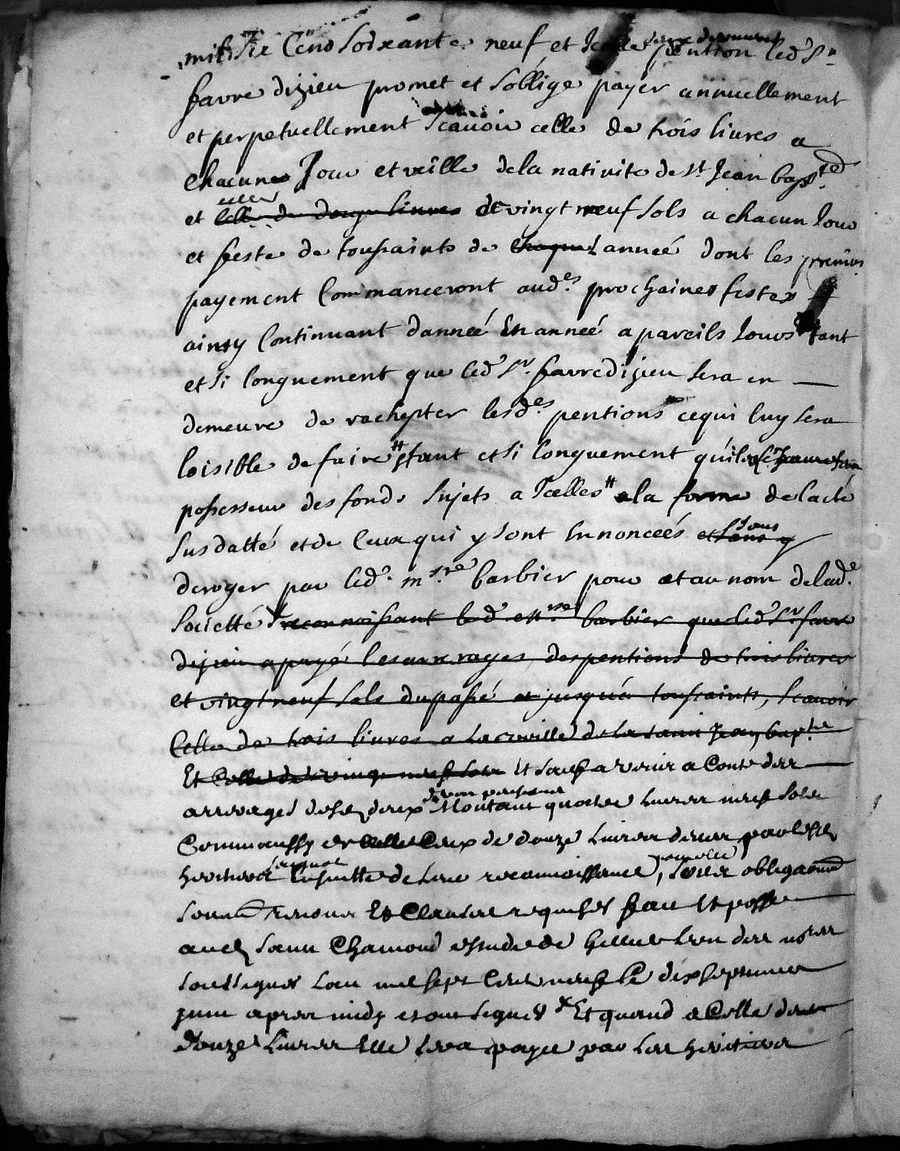 mil six Cens Soixante neuf et Icelles pention led. Sr.
favre dizieu promet et soblige payer annuellement
et perpetuellement scavoir celle de trois livres a
chacune Jour et veille dela nativité de st Jean bapte
et celle de douze livres de vingt neuf sols a chacun Jour
et feste de toussaints de chaque année dont les premiers
payement Commanceront aud.es prochaines festes
ainsy Continuant danneé En anneé a pareils Jours tant
et si longuement que led. Sr. favre dizieu sera en
demeure de rachepter lesd.es pentions ce qui luy sera
loisible de faire # tant et si longuement quil
possesseur des fonds sujets a Icelles # a la forme de lacte
susdatté et de Ceux qui y sont Ennonceés et sans y
sans
deroger par led. m.re barbier pour et au nom delad.e
societté reconnoissant led. m.re barbier que led. Sr. favre
dizieu a payé les arrerages des pentions de trois livres
et vingt neuf sols du passé et jusqua toussaints, scavoir
Celle de trois livres a la veille de la saint Jean bapte
Et Celle de vingt neuf sols Et sauf a venir a Conte des
arrerages desd. deux Montant quatre livres neuf sols
Comme aussy de Celle Ceux de douze livres deues par les
heritiers ensuitte de leur reconnoissance, obligaons
soumons renonons Et Clauses requises fait Et passé
aud. saint Chamond estude de lun des nores
soussignés Lan mil sept Cens neuf Le dix septieme
juin apres midy et ont signés Et quand a Celle de
douze Livres Elle sera payée par les heritiers